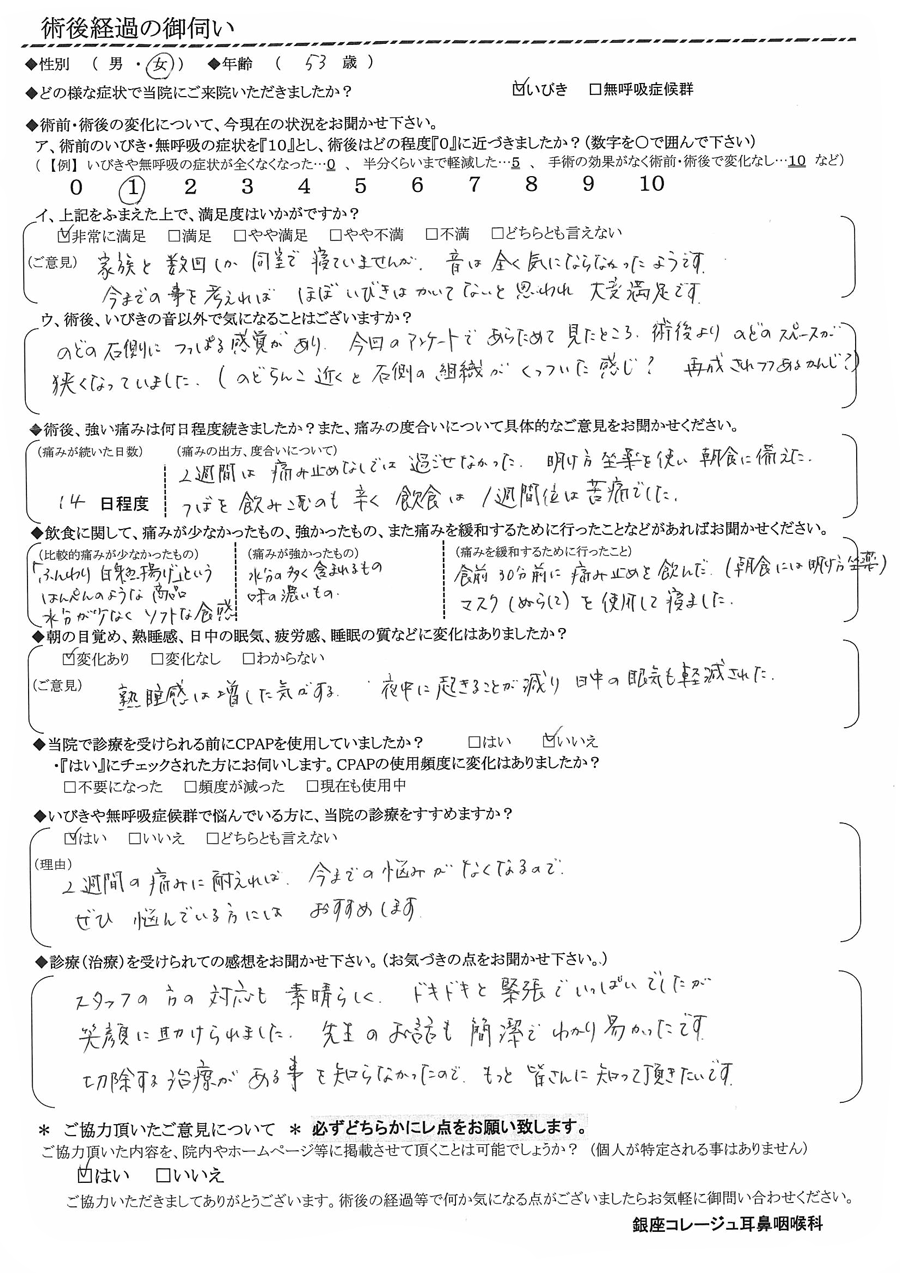 術後経過の御伺い
◆性別 ( 男 ・ 女 ) ◆年齢 ( 53 歳 )
◆どの様な症状で当院にご来院いただきましたか? ☑いびき □無呼吸症候群
◆術前・術後の変化について、今現在の状況をお聞かせ下さい。
ア、術前のいびき・無呼吸の症状を『10』とし、術後はどの程度『0』に近づきましたか?(数字を○で囲んで下さい)
(【例】いびきや無呼吸の症状が全くなくなった…0 、 半分くらいまで軽減した…5 、 手術の効果がなく術前・術後で変化なし…10 など)
0 1 2 3 4 5 6 7 8 9 10
イ、上記をふまえた上で、満足度はいかがですか?
☑非常に満足 □満足 □やや満足 □やや不満 □不満 □どちらとも言えない
(ご意見) 家族と数回しか同室で寝ていませんが、音は全く気にならなかったようです。
今までの事を考えれば ほぼいびきはかいてないと思われ 大変満足です。
ウ、術後、いびきの音以外で気になることはございますか?
のどの右側に つっぱる感覚があり、今回のアンケートで あらためて見たところ、術後より のどのスペースが
狭くなっていました。(のどちんこ近くと右側の組織が くっついた感じ? 再成されつつあるかんじ?)
◆術後、強い痛みは何日程度続きましたか?また、痛みの度合いについて具体的なご意見をお聞かせください。
(痛みが続いた日数) (痛みの出方、度合いについて)
2週間は 痛み止めなしでは 過ごせなかった。 明け方坐薬を使い 朝食に備えた。
14 日程度 つばを飲みこむのも辛く 飲食は 1週間位は苦痛でした。
◆飲食に関して、痛みが少なかったもの、強かったもの、また痛みを緩和するために行ったことなどがあればお聞かせください。
(比較的痛みが少なかったもの) (痛みが強かったもの) (痛みを緩和するために行ったこと)
「ふんわり 白魚揚げ」という 水分の多く含まれるもの 食前30分前に痛み止めを飲んだ。(朝食には明け方坐薬)
はんぺんのような商品 味の濃いもの。 マスク(ぬらして)を使用して寝ました。
水分が少なく ソフトな食感
◆朝の目覚め、熟睡感、日中の眠気、疲労感、睡眠の質などに変化はありましたか?
☑変化あり □変化なし □わからない
(ご意見) 熟睡感は増した気がする。 夜中に起きることが減り 日中の眠気も軽減された。
◆当院で診療を受けられる前にCPAPを使用していましたか? □はい ☑いいえ
・『はい』にチェックされた方にお伺いします。CPAPの使用頻度に変化はありましたか?
□不要になった □頻度が減った □現在も使用中
◆いびきや無呼吸症候群で悩んでいる方に、当院の診療をすすめますか?
☑はい □いいえ □どちらとも言えない
(理由)
2週間の痛みに耐えれば、今までの悩みがなくなるので、
ぜひ 悩んでいる方には おすすめします。
◆診療(治療)を受けられての感想をお聞かせ下さい。(お気づきの点をお聞かせ下さい。)
スタッフの方の対応も 素晴らしく、 ドキドキと緊張でいっぱいでしたが
笑顔に助けられました。 先生のお話も 簡潔でわかり易かったです。
切除する治療がある事を知らなかったので、もっと皆さんに知って頂きたいです。
* ご協力頂いたご意見について * 必ずどちらかにレ点をお願い致します。
ご協力頂いた内容を、院内やホームページ等に掲載させて頂くことは可能でしょうか? (個人が特定される事はありません)
☑はい □いいえ
ご協力いただきましてありがとうございます。術後の経過等で何か気になる点がございましたらお気軽に御問い合わせください。
銀座コレージュ耳鼻咽喉科